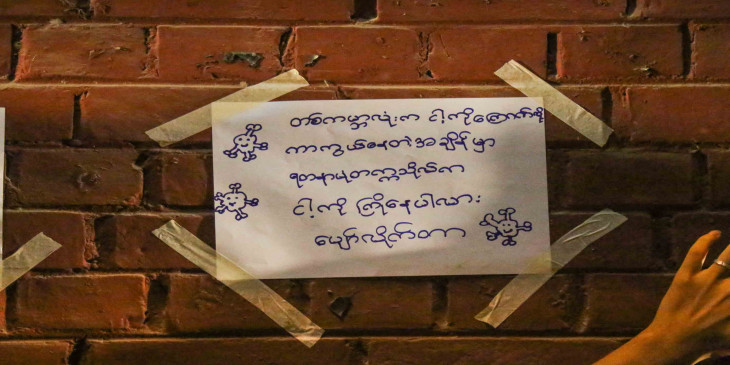 တစ်ကမ္ဘာလုံးက ငါ့ကိုကြောက်လို့
ကာကွယ်နေတဲ့အချိန်မှာ
ရတနာပုံတက္ကသိုလ်က
ငါ့ကို ကြိုနေပါလား
ပျော်လိုက်တာ